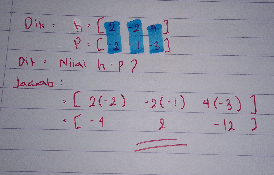 Dik = h = [ 2 -2 4 ]
P = [ -2 -1 -3 ]
Dit = Nilai h · P ?
Jawab :
= [ 2(-2) -2(-1) 4(-3) ]
= [ -4 2 -12 ]